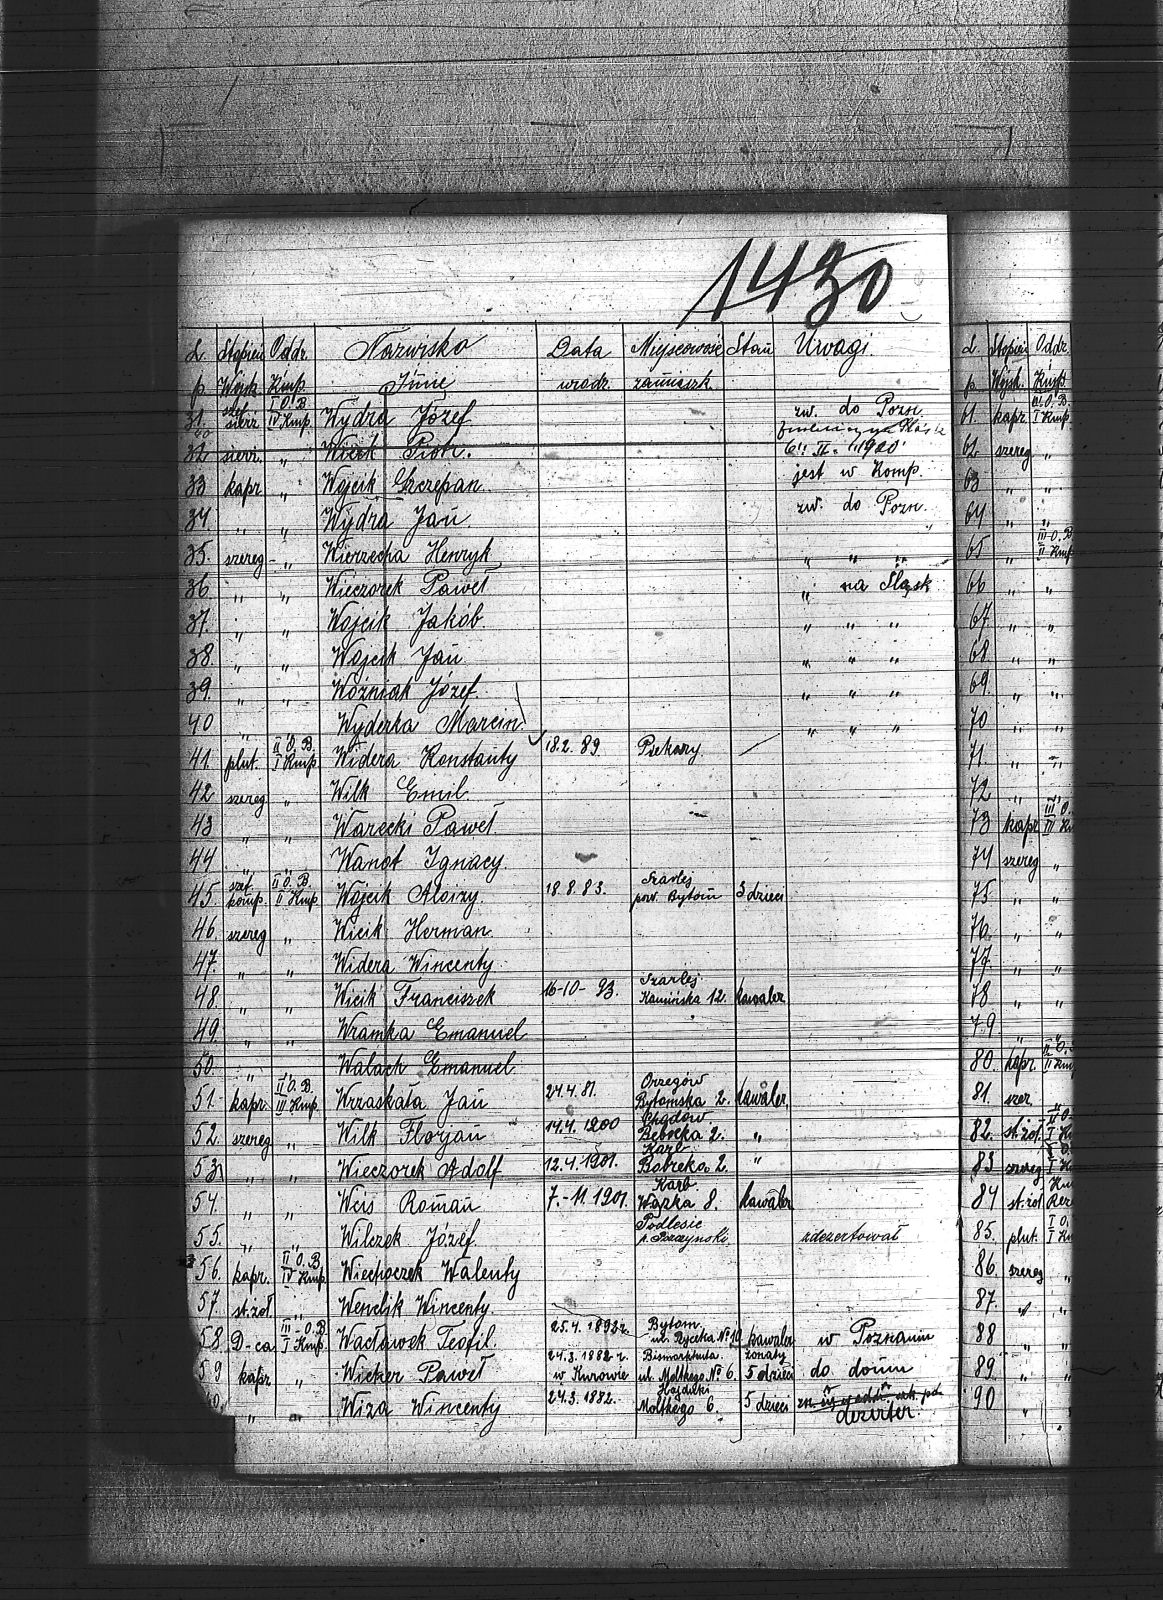 1430
L. Stopień Oddz. Nazwisko Data Miejscowość Stan Uwagi.
p. Wojsk. Kmp. Imie urodz. zamieszk.
31. szef sierż. II O.B. IV Kmp. Wydra Józef zw. do Pozn.
32 sierż. „ Wicik Piotr. 6. II. 1920
33 kapr „ Wojcik Szczepan. jest w Komp.
34 „ „ Wydra Jan zw. do Pozn.
35. szereg „ Wierzecha Henryk „ „ „
36 „ „ Wieczorek Paweł „ na Śląsk
37. „ „ Wojcik Jakób „ „ „
38. „ „ Wojcik Jan „ „ „
39. „ „ Woźniak Józef „ „ „
40 „ Wyderka Marcin „ „ „
41. plut. II O.B. I Kmp. Widera Konstanty 18.2.89. Piekary
42 szereg „ Wilk Emil
43 „ „ Warecki Paweł
44 „ „ Wanot Ignacy
45. szef komp. II O.B. II Kmp. Wojcik Aloizy 18.8.83. Szarlej pow. Bytom 3 dzieci
46 szereg „ Wicik Herman
47. „ „ Widera Wincenty
48. „ „ Wicik Franciszek 16-10-93. Szarlej Kamińska 12. kawaler
49. „ „ Wramka Emanuel
50. „ „ Walach Emanuel
51. kapr. II O.B. III Kmp. Wrzaskała Jan 24.4.81. Orzegów Bytomska 2. kawaler
52. szereg „ Wilk Florjan 14.4.1900 2. „
53 „ „ Wieczorek Adolf 12.4.1901. Karb Bobreko 2. „
54. „ „ Weis Roman 7.-11.1901. Karb Wązka 8. kawaler
55. „ „ Wilczek Józef. Podlesie p. zdezertował
56. kapr. II O.B. IV Kmp. Wiechoczek Walenty
57. st.żoł „ Wendlik Wincenty.
58. D-ca III O.B. I Kmp. Wacławek Teofil. 25.4.1893 r. Bytom ul. Rycerka № 10 kawaler w Poznaniu
59 kapr „ Wicher Paweł 24.3.1882 r. w Kurowie Bismarkhuta. ul. Moltkego № 6. żonaty 5 dzieci do domu
„ Wiza Wincenty 24.3.1882. Hajduki Moltkego 6. 5 dzieci dezerter.
L. Stopień Oddz.
p. Wojsk. Kmp.
61. kapr III O.B. I Kmp.
62 szereg „
63 „ „
64 „ „
65 „ III O.B. II Kmp
66 „ „
67. „ „
68 „ „
69. „ „
70 „ „
71. „ „
72 „ „
73 kapr III O. III K
74 szereg „
75 „ „
76. „ „
77. „ „
78 „ „
79 „
80. kapr. II Kmp
81. szer
82. st.żoł
83 szereg
84 st.żoł
85. plut. I O.
86. szereg „
87. „ „
88 „ „
89. „ „
90 „ „